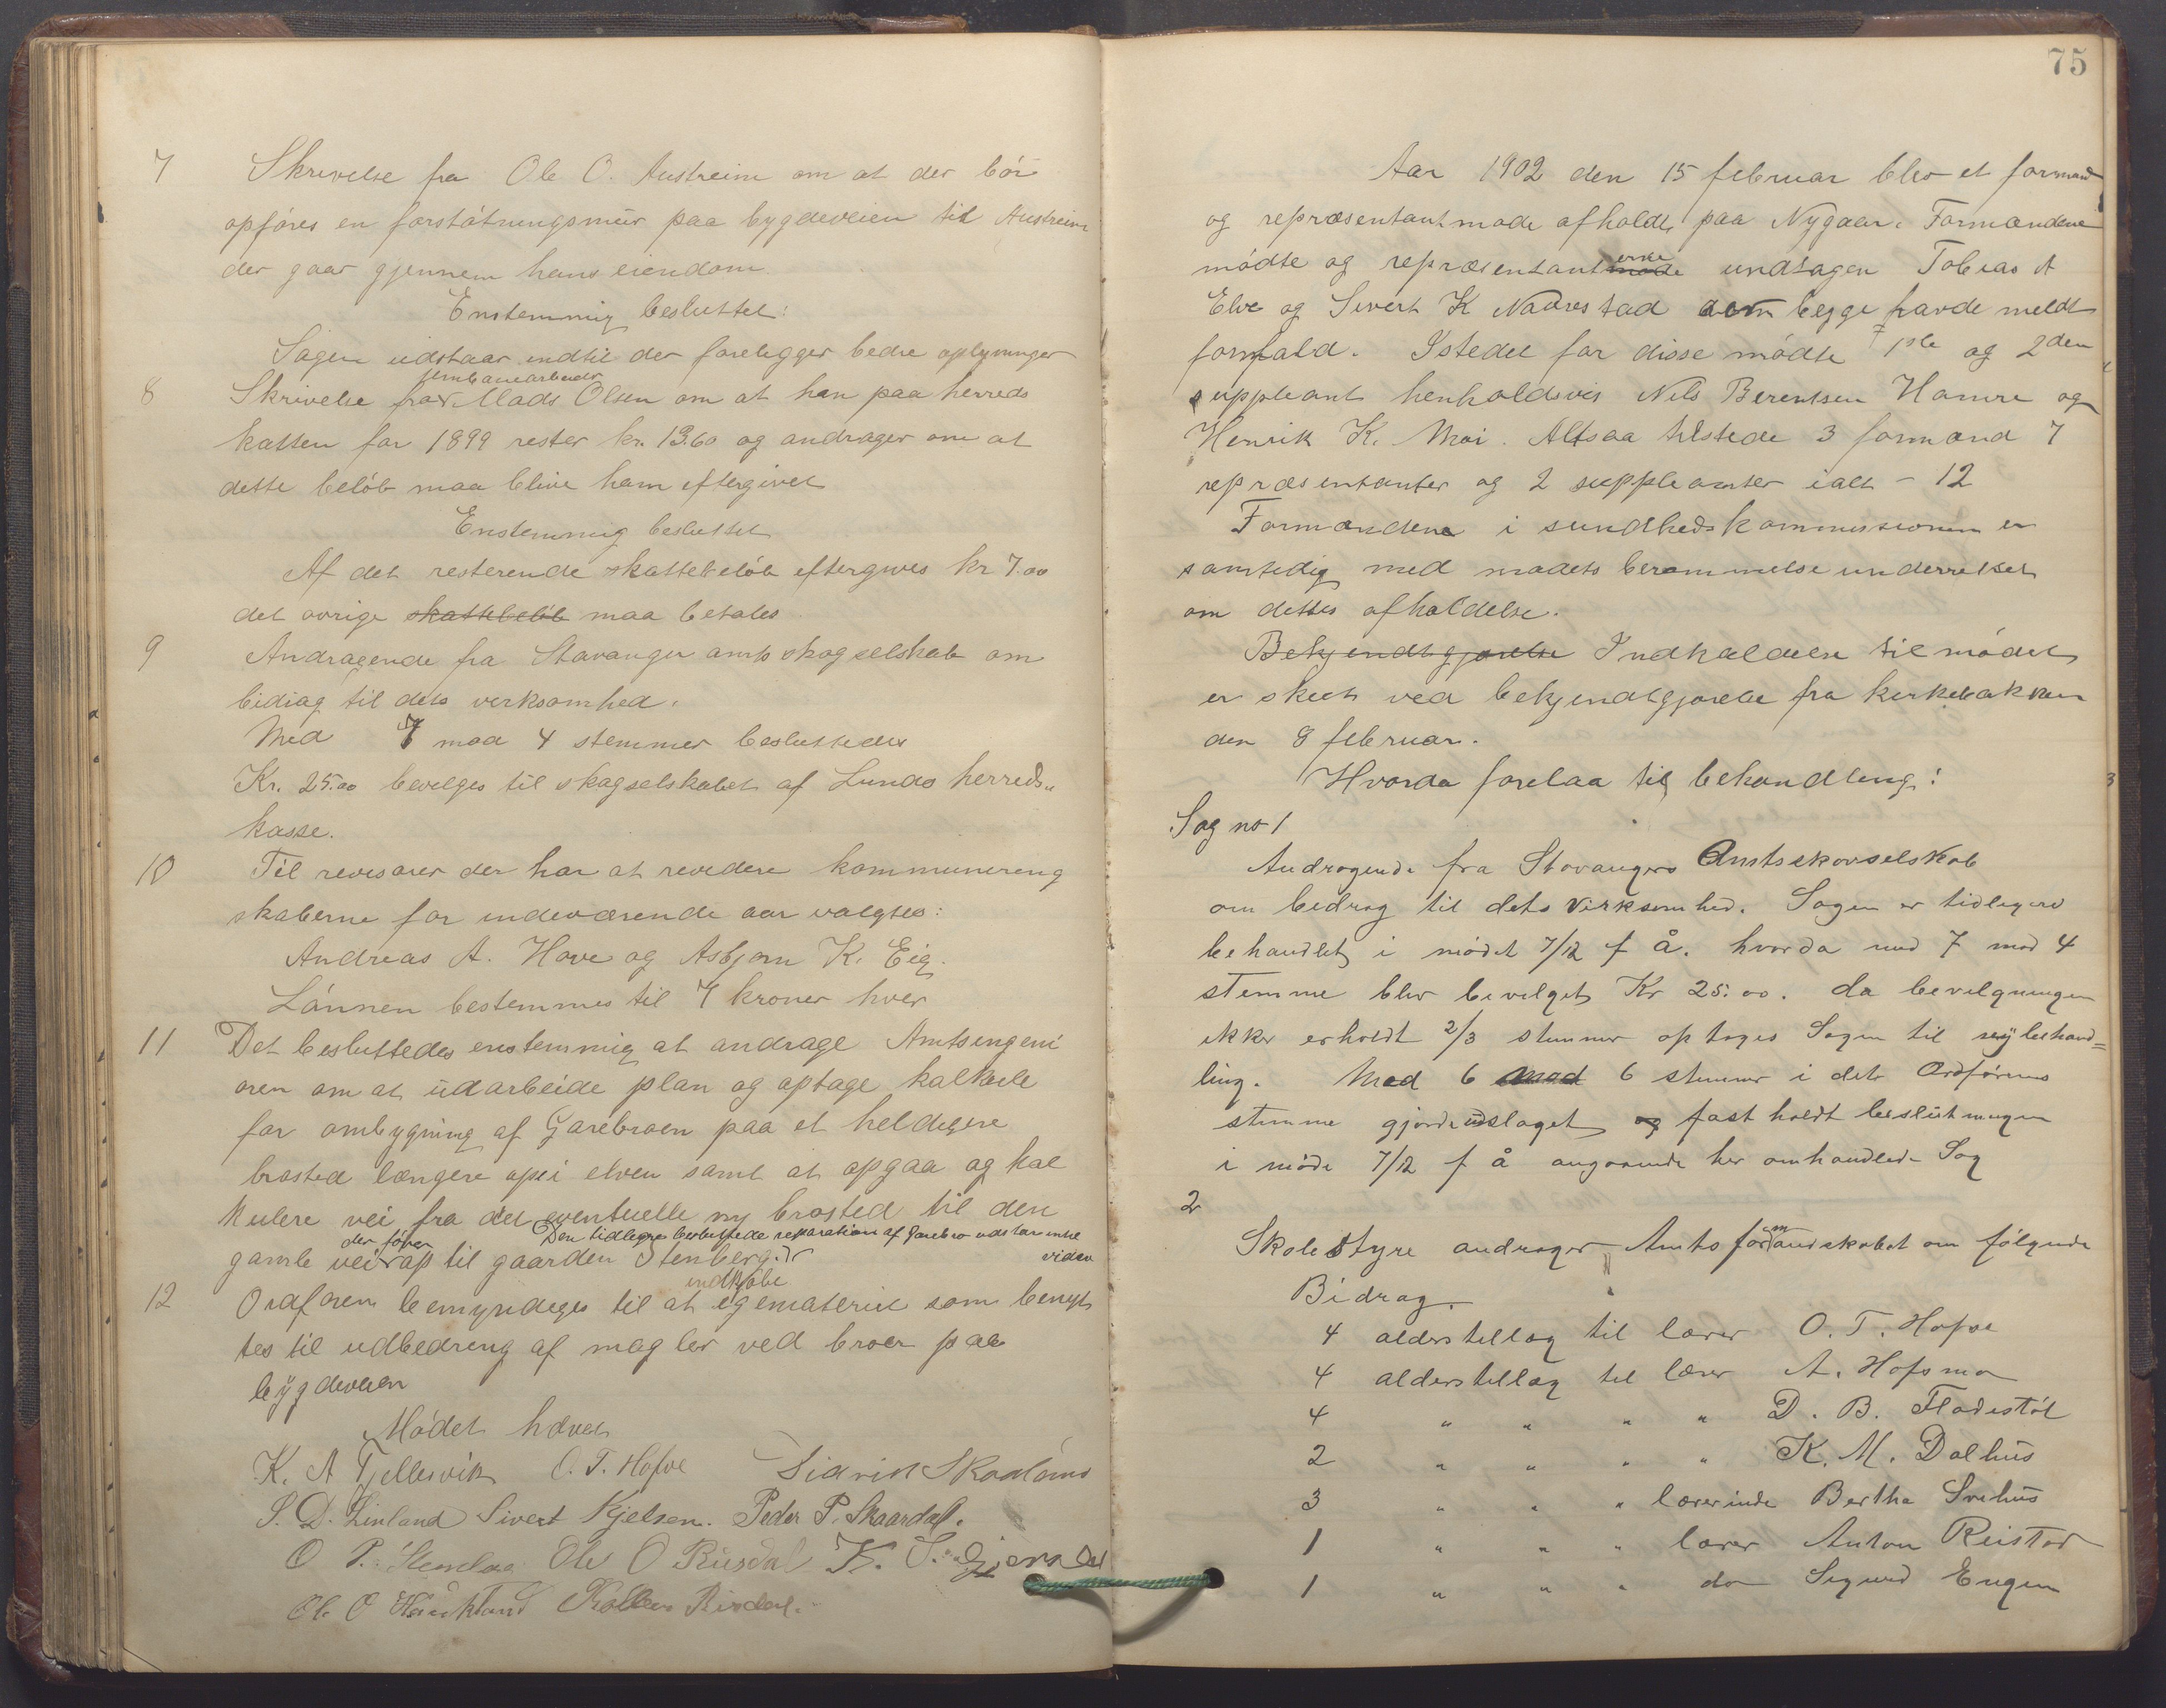 7 Skrivelse fra Ole O. Austreim om at der bör
opföres en forstötningsmur paa bygdeveien til Austreim
der gaar gjennem hans eiendom
Enstemmig besluttet:
Sagen udstaar indtil der foreligger bedre oplysninger
8 Skrivelse fra jernbanearbeider Mads Olsen om at han paa herreds
katten for 1899 rester kr. 13.60 og andrager om at
dette belöb maa blive ham eftergivet
Enstemmig besluttet
Af det resterende skattebelöb eftergives kr 7.00
det øvrige skattebelöb maa betales
9 Andragende fra Stavanger amts skogselskab om
bidrag til dets verksomhed.
Med 7 mod 4 stemmer besluttedes
Kr. 25.00 bevilges til skogselskabet af Lunds herreds
kasse.
10 Til revisorer der har at revidere kommunereng
skaberne for indeværende aar valgtes:
Andreas A. Hove og Asbjørn K. Eig.
Lönnen bestemmes til 7 kroner hver
11 Det besluttedes enstemmig at andrage Amtsingeni
øren om at udarbeide plan og optage kalkule
for ombygning af Garebroen paa et heldigere
brosted længere op i elven samt at opgaa og kal
kulere vei fra det eventuelle ny brosted til den
gamle vei der förer op til gaarden Stenberg. Den tidligere besluttede reparation af Garebro udstaar indtil
videre
12 Ordføren bemyndiges til at indkjøbe egemateriel som benyt
tes til udbedreng af mangler ved broer paa
bygdeveien
Mödet hævet
K. A Tjellesvik O. T. Hofve Sidrik Skaaland
S. D. Linland Sivert Kjelsen. Peder P. Skaardal.
O P. Ole O Rusdal K. S. Gjersdal
Ole O Haukland
75
Aar 1902 den 15 februar blev et formand
og repræsentantmøde afholdt paa Nygaar. Formændene
mödte og repræsentantmøde erne undtagen Tobias A
Elve og Sivert K Nadrestad som begge havde meldt
forfald. Istedet for disse mödte 1ste og 2den
suppleant henholdsvis Nils Berentsen Hamre og
Henrik K. Moi. Altsaa tilstede 3 formænd 7
repræsentanter og 2 suppleanter ialt - 12
Formændene i sundhedskommissionen er
samtidig med mødets berammelse underrettet
om dettes afholdelse.
Bekjendtgjørelse Indkaldelse til mödet
er skeet ved bekjendtgjørelse fra kirkebakken
den 8 februar.
Hvorda forelaa til behandling:
Sag no 1
Andragende fra Stavangers Amtsskovselskab
om bedrag til dets Virksomhed. Sagen er tidligere
behandlet i mödet 7/12 f å. hvorda med 7 mod 4
stemme blev bevilget Kr 25.00. da bevilgningen
ikke erholdt 2/3 stemmer optoges Sagen til nybehand=
ling. Med 6 mod 6 stemmer i det Ordförens
stemme gjorde udslaget og fastholdt beslutningen
i möde 7/12 f å angaaende her omhandlede Sag
2
Skolestyre andrager Amtsformandskabet om följende
Bidrag.
4 alderstillæg til lærer O. T. Hofve
4 alderstillæg til lærer A. Hofsmo
4 " " " " D. B. Fladestöl
2 " " " " K. M. Dalhus
3 " " " lærerinde Bertha Svehus
1 " " " lærer Anton Reistad
1 " " " do Sigurd Eugen